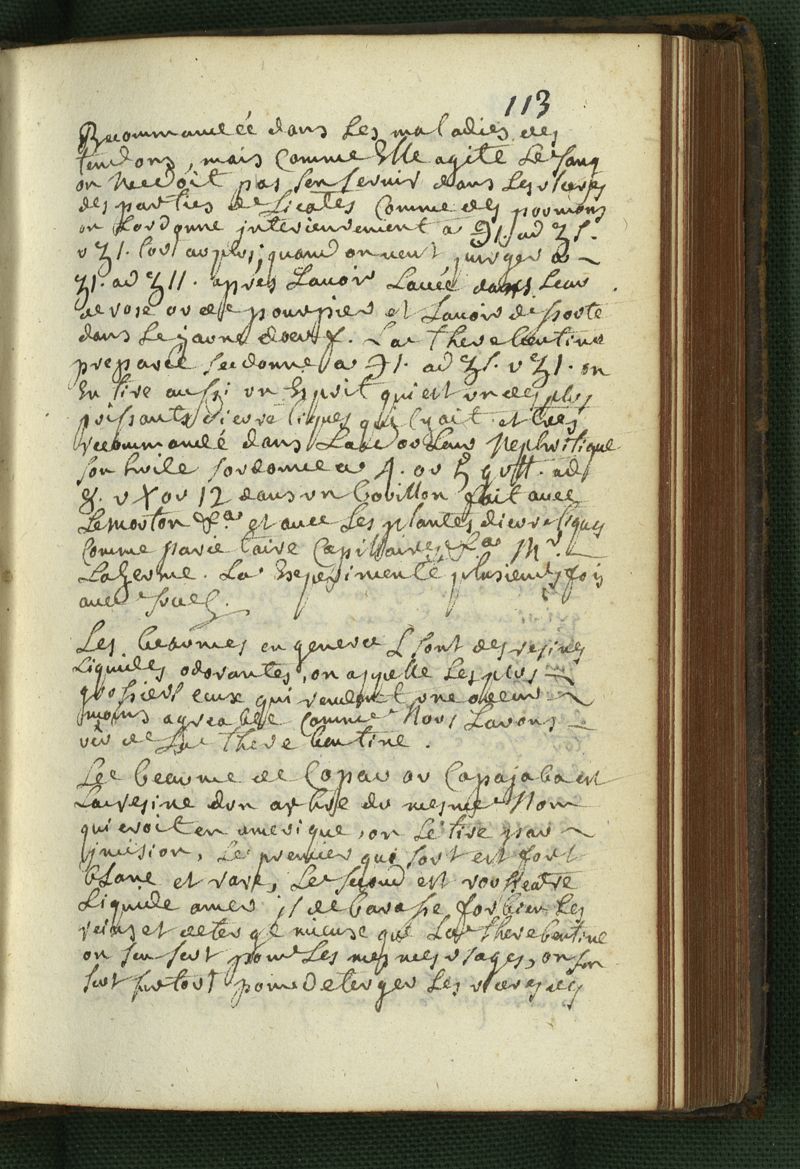 113
Recommandéé dans les maladies des
tendons, mais comme Elle agite le sang
on ne doit pas sen servir dans les vlceres
des parties delicates comme des poumons
on Lordonne interieurement a ℈1. ad ʒs.
v ʒ1. tout au plus; quand on veut purger a
ʒ1. ad ʒ11. aprés Lavoir Lavée dans leau
de rose ou de pourpier et Lavoir dissoute
dans le jaune doeuf. La therebentine
preparée se donne a ℈1. ad ʒs. v ʒ1. on
En tire aussi vn Esprit qui est vn des plus
puissants dieuretiques quil y ait et tres
recommandé dans La colique Nephritique
son huile sordonne a 4. ou 5 gutt. ad
8. v X ou 12 dans vn bouillon fait avec
Le mouton &a et avec les plantes dieuretiques
comme parietaire Capillaires &a Mr.
Lazerme. La Experimenté plusieurs fois
avec succez.
Les beaumes en general sont des resines
Liquides odorantes, on appelle les plus
grossiers ceux qui rendent vne odeur
moins agreable comme Nous Lavons
vû de La therebentine.
Le beaume de Copau ou Copajaba est
La resine dun arbre du mesme Nom
qui croit en amerique, on le tire par
jncision, Le premier qui sort est fort
blanc et rare, Le second est roussatre
Liquide amer, il debarasse fort bien les
reins et deterge mieux que La therebentine
on sen sert pour Les mesmes vsages, on sen
sert surtout pour Deterger Les vlceres des